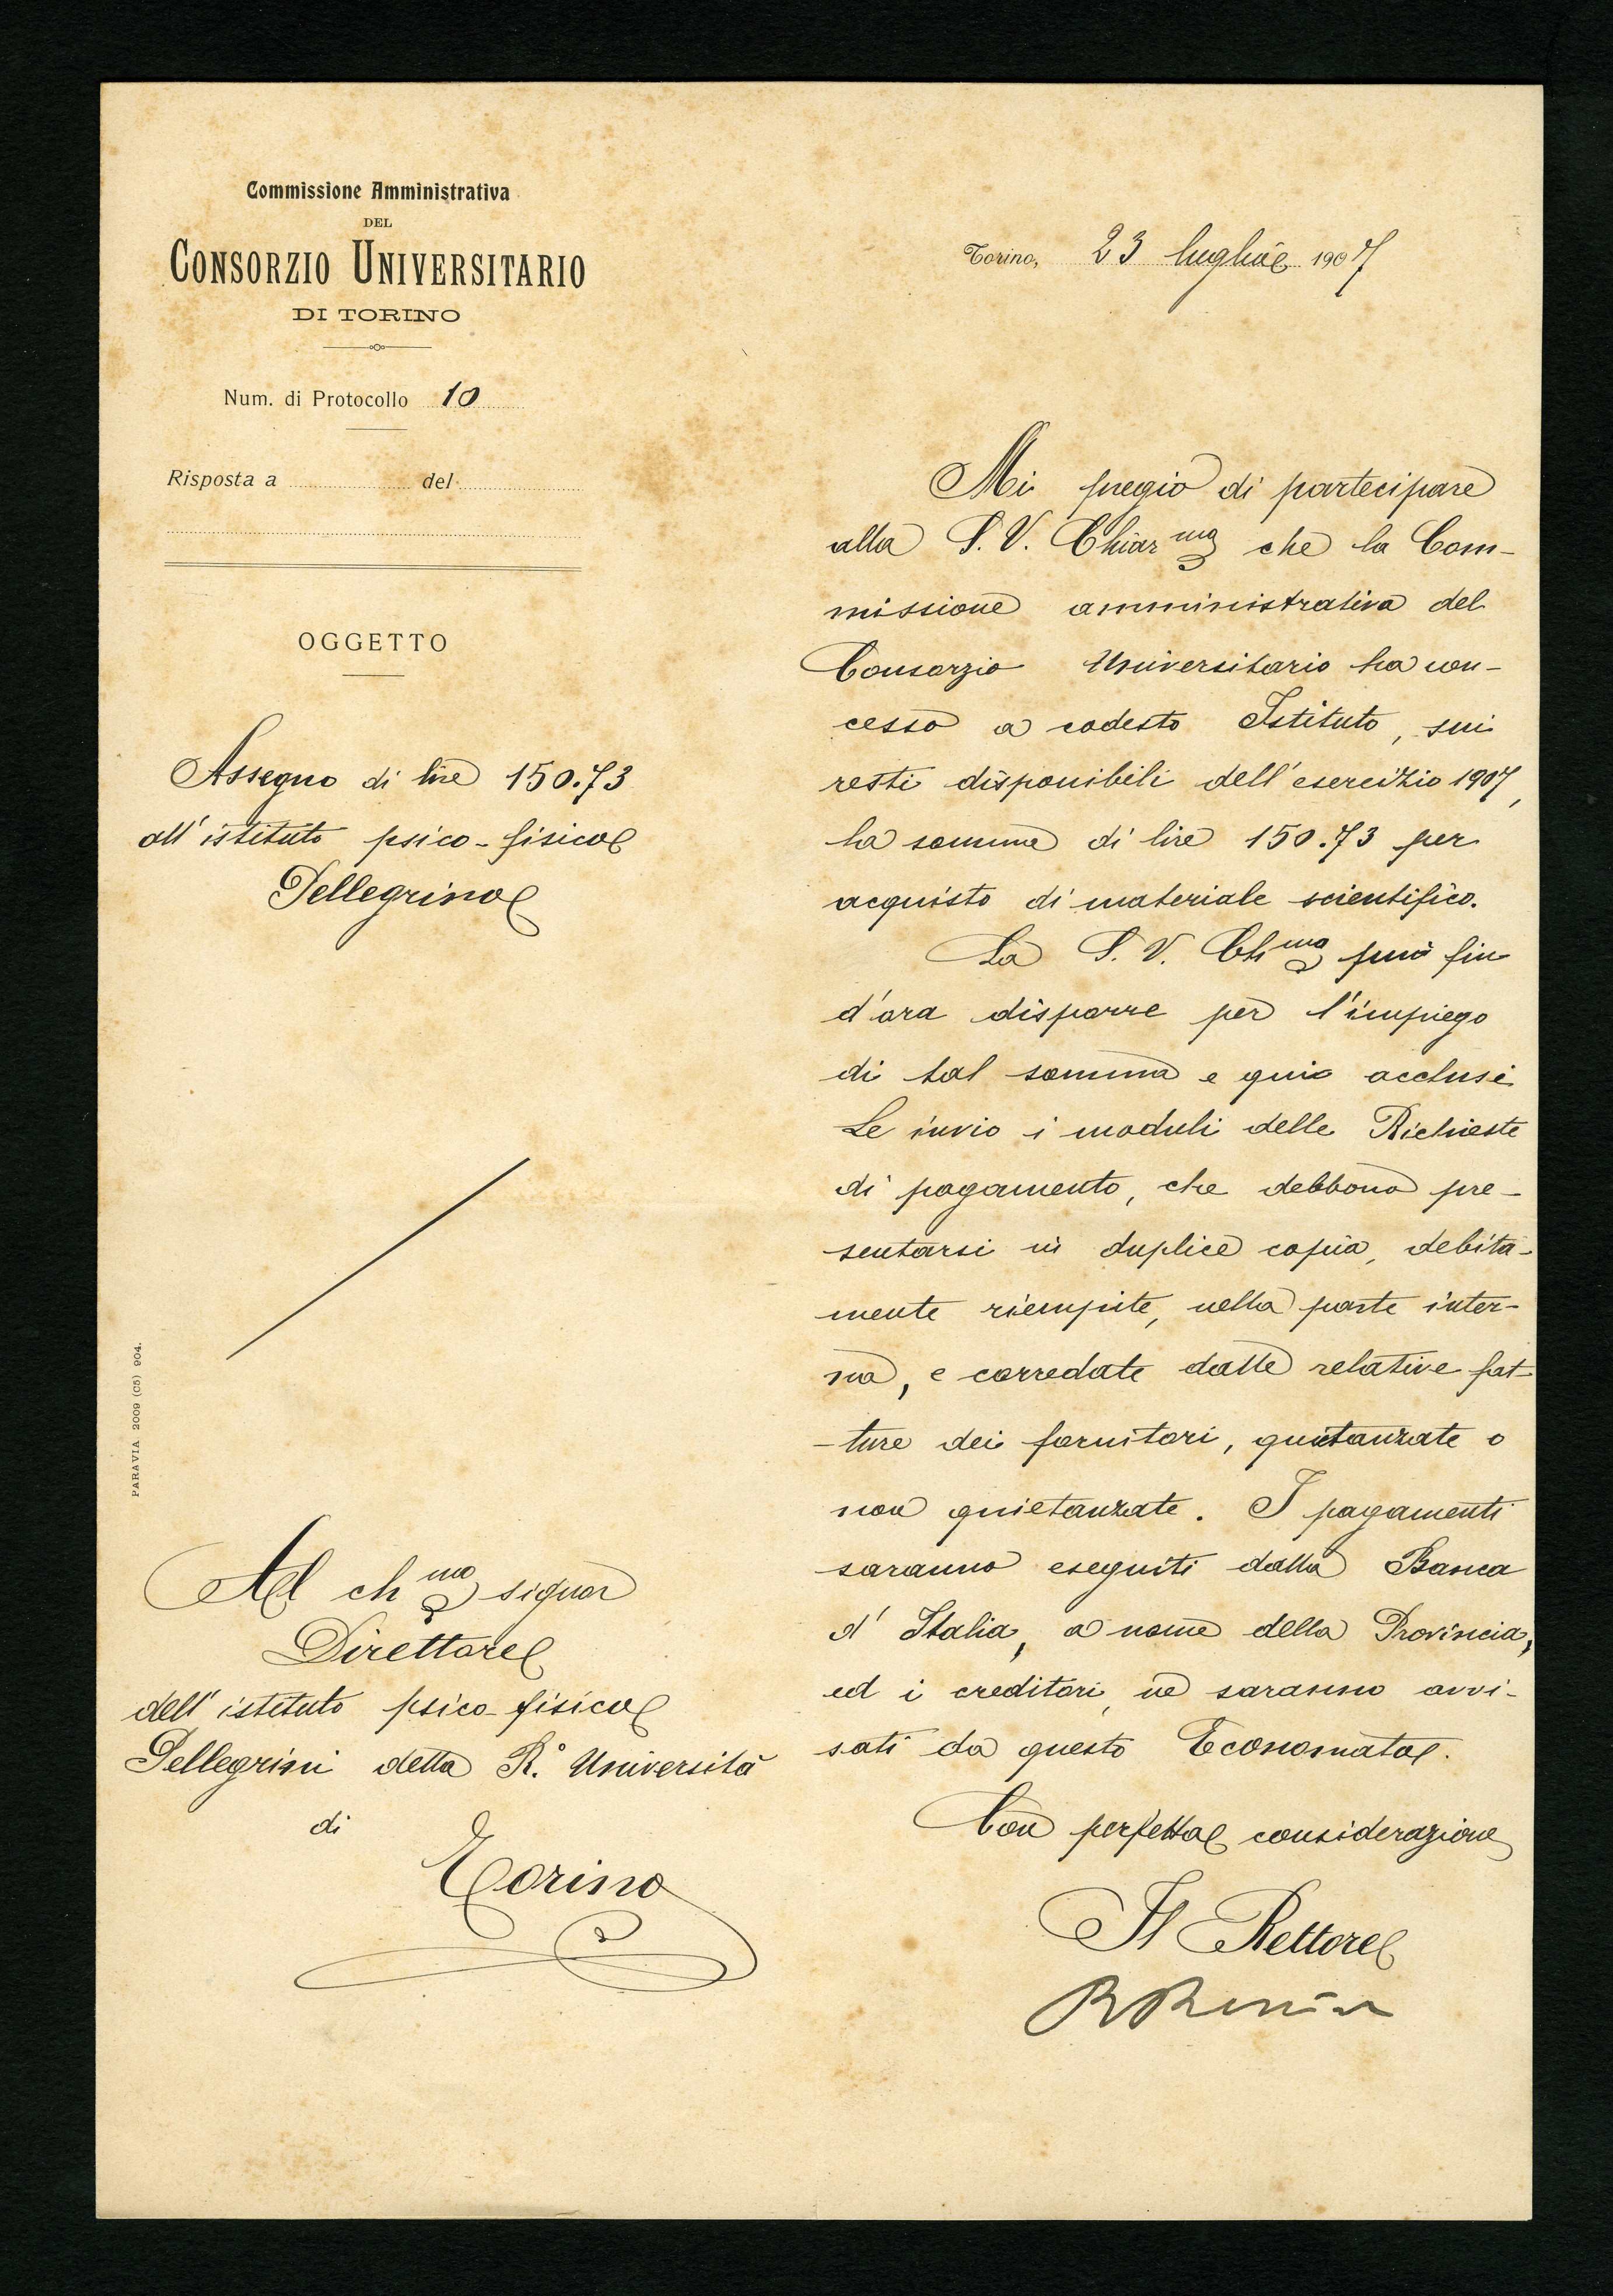 Commissione Amministrativa
DEL
CONSORZIO UNIVERSITARIO
DI TORINO
Num. di Protocollo 10
Risposta a del
OGGETTO
Assegno di lire 150.73
all' istituto psico-fisico
Pellegrino
PARAVIA 2009 (C5) 904.
Al ch mo signor
Direttore
dell' istituto psico-fisico
Pellegrini della R.a Università
di
Torino
Torino, 23 luglio 1907
Mi pregio di partecipare
alla S. V. Chiar ma che la Com-
missione amministrativa del
Consorzio Universitario ha con-
cesso a codesto Istituto, sui
resti disponibili dell' esercizio 1907,
la somma di lire 150.73 per
acquisto di materiale scientifico.
La S. V. Ch ma può fin
d'ora disporre per l'impiego
di tal somma e qui acclusi
Le invio i moduli delle Richieste
di pagamento, che debbono pre-
sentarsi in duplice copia, debita-
mente riempite, nella parte inter-
na, e corredate dalle relative fat-
-ture dei fornitori, quietanzate o
non quietanzate. I pagamenti
saranno eseguiti dalla Banca
d' Italia, a nome della Provincia,
ed i creditori ne saranno avvi-
sati da questo Economato.
Con perfetta considerazione
Il Rettore